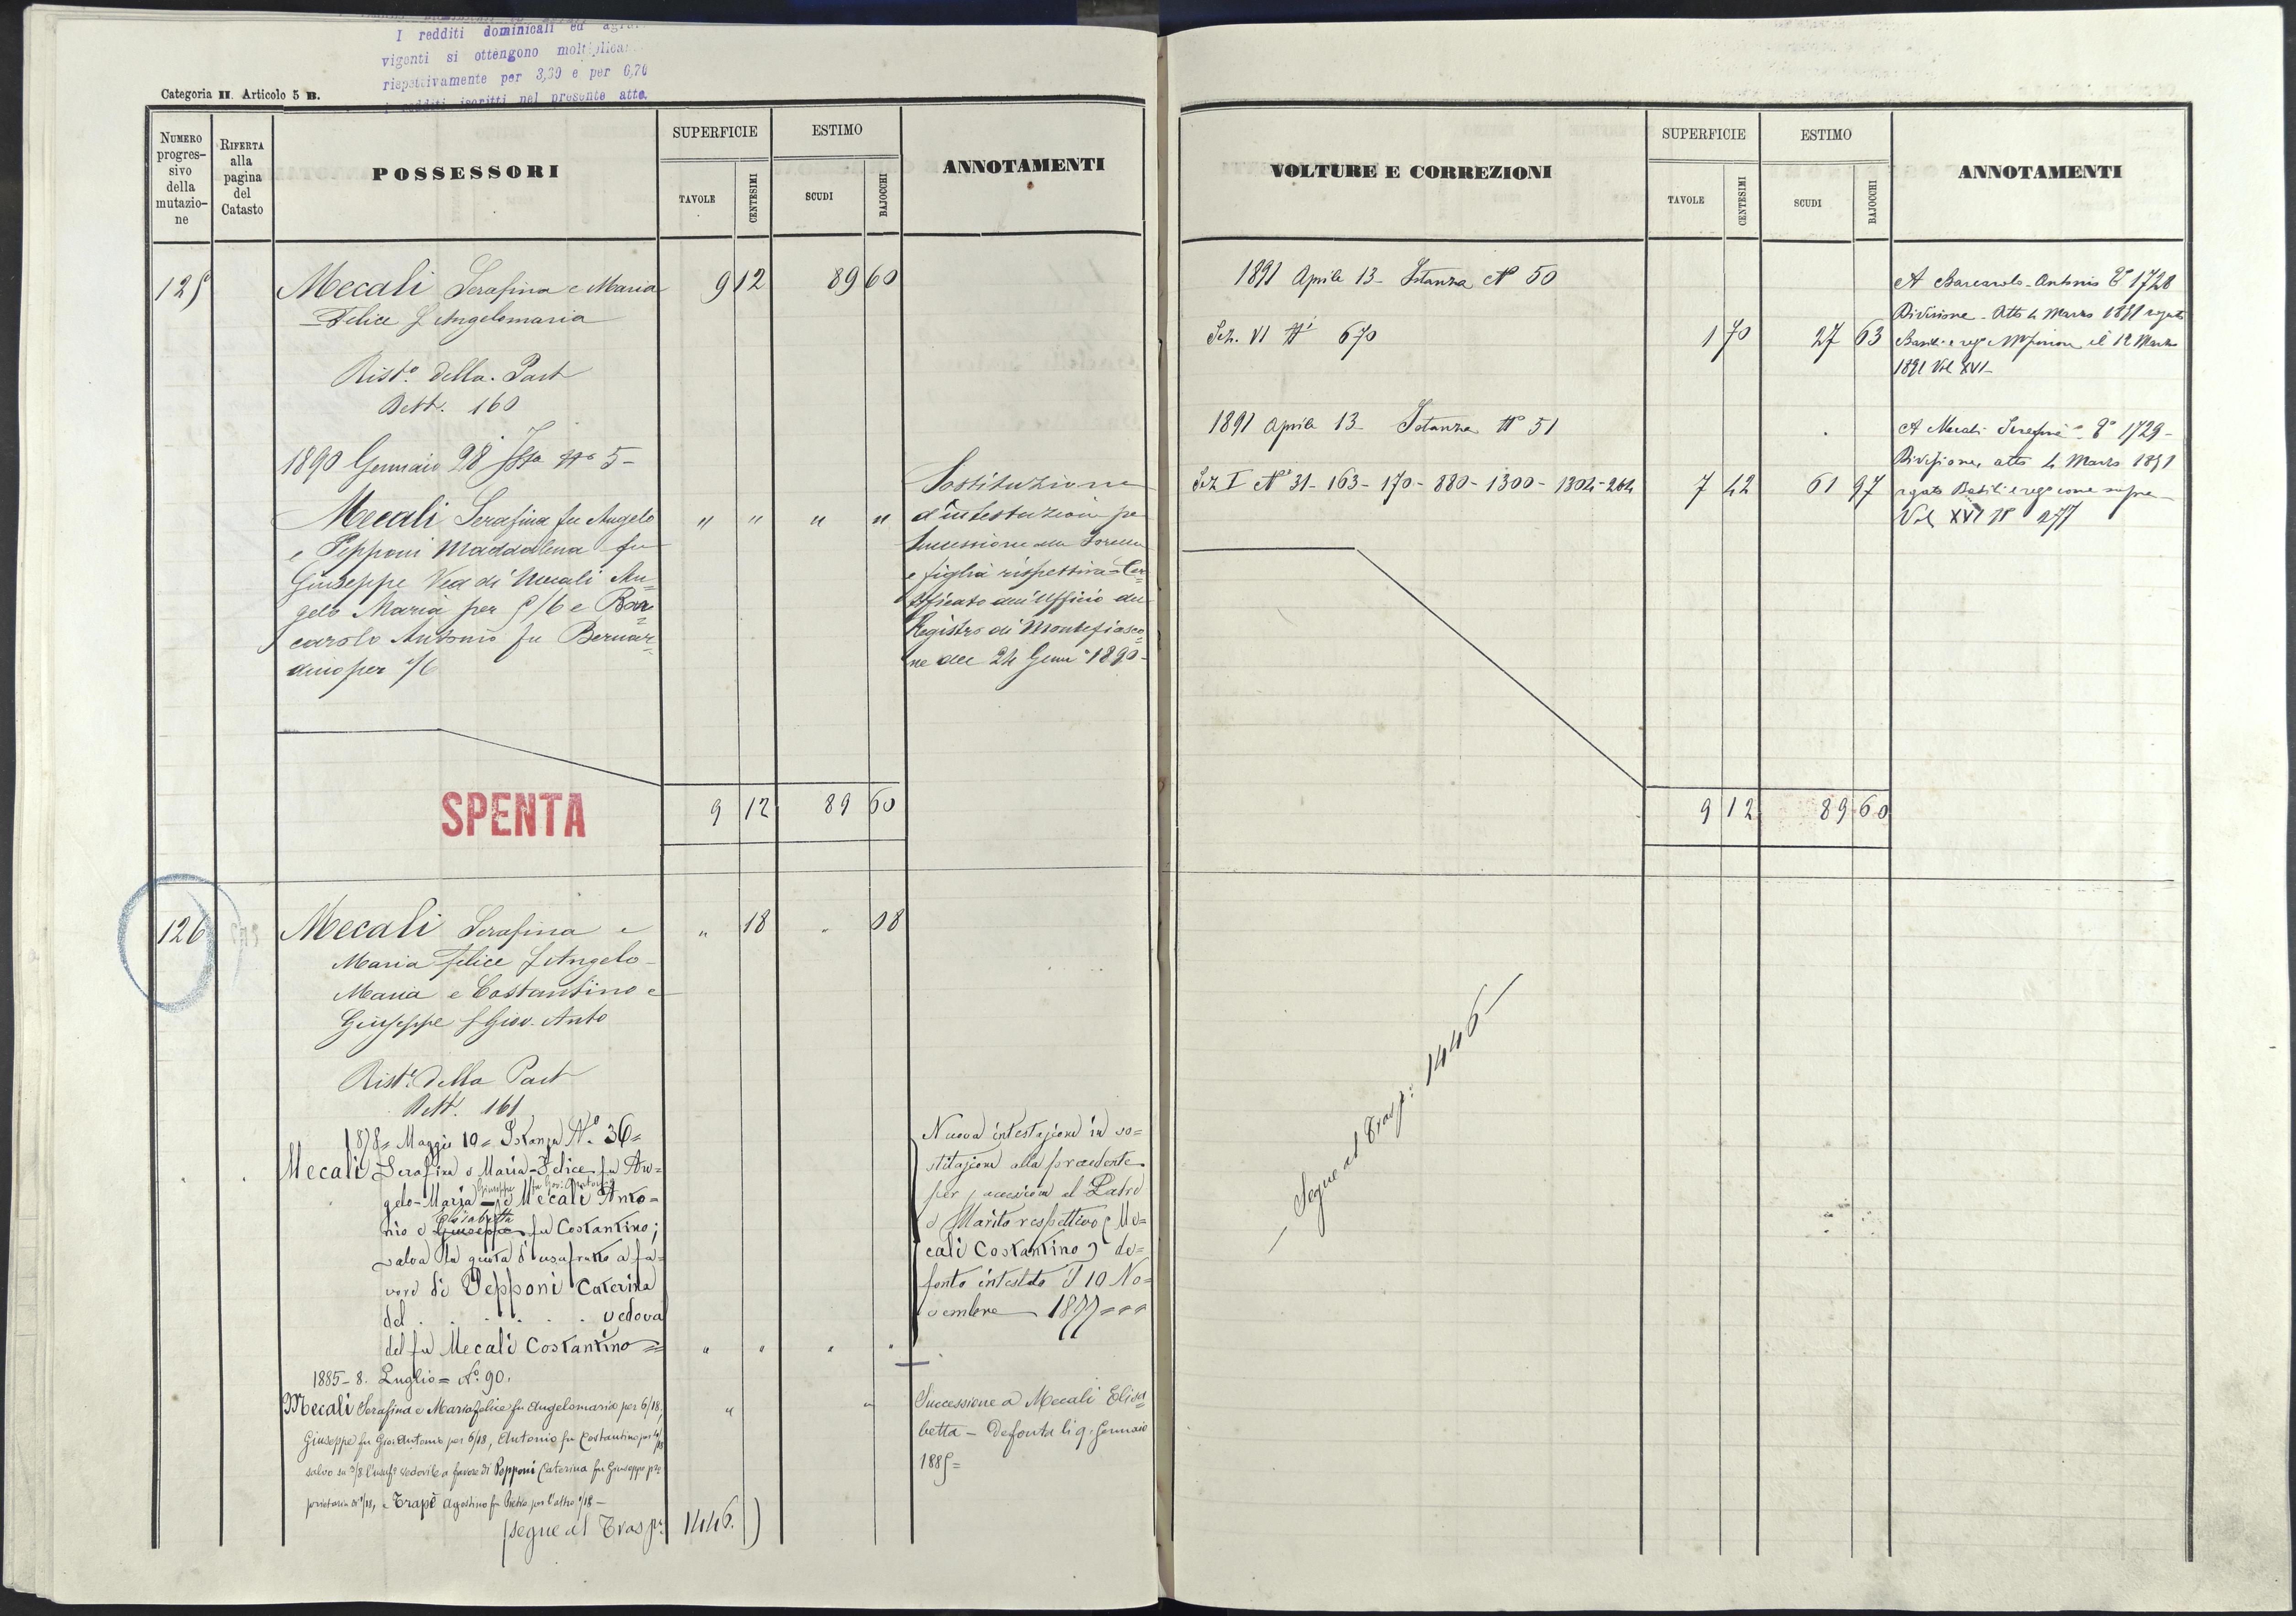 I redditi dominicali ed
vigenti si ottengono
rispettivamente per 3,30 e per 6,70
redditi iscritti nel presente atto.
Categoria II. Articolo 5 B.
NUMERO progres-sivo della mutazio-ne
RIFERTA alla pagina del Catasto
POSSESSORI
SUPERFICIE
TAVOLE
CENTESIMI
ESTIMO
SCUDI
BAJOCCHI
ANNOTAMENTI
125 Mecali Serafina e Maria 9 12 89 60
Felice f Angelomaria
Rist.o della Part
Rett. 160
1890 Gennaio 28 Istza No 5-
Mecali Serafina fu Angelo " " " "
e Pepponi Maddalena fu
Giuseppe Ved di Mecali An=
gelo Maria per 5/6 e Bar=
carolo Antonio fu Bernar=
dino per 1/6
Sostituzione
d'intestazione pe
successione alla sorella
e figlia rispettiva = Cer=
tificato dell'Ufficio del
Registro di Montefiasco=
ne del 24 Genn° 1890-
SPENTA
9 12 89 60
126 Mecali Serafina e " 18 " 08
Maria Felice f Angelo
Maria e Costantino e
Giuseppe f Giov. Anto
Rist.e della Part
Rett. 161
1878= Maggio 10= Istanza N.o 36=
Mecali Serafina e Maria-Felice fu An=
Giuseppe fu Gio: Antonio
gelo-Maria = e Mecali Anto=
Elisabetta
nio e Giuseppe fu Costantino;
salva la quota d'usufrutto a fa=
vore di Pepponi Caterina
del . . . . . . vedova
del fu Mecali Costantino= " " " "
Nuova intestazione in so=
stituzione alla precedente
per successione al Padre
e Marito respettivo (Me=
cali Costantino) de=
fonto intestato il 10 No=
vembre 1877===
1885-8. Luglio= No. 90.
Mecali Serafina e Mariafelice fu Angelomaria per 6/18, " "
Giuseppe fu Gio: Antonio per 6/18, Antonio fu Costantino per 4/18
salvo su 3/8 l'usuf° vedovile a favore di Pepponi Caterina fu Giuseppe pro=
prietaria di 1/18, e Trapè Agostino fu Pietro per l'altro 1/18-
(segue al Trasp. 1446.)
Successione a Mecali Elisa=
betta - Defonta li 9. Gennaio
1885=
VOLTURE E CORREZIONI
SUPERFICIE
TAVOLE
CENTESIMI
ESTIMO
SCUDI
BAJOCCHI
ANNOTAMENTI
1891 Aprile 13- Istanza No 50
Sez. VI No 670 1 70 27 63
A Barcarolo Antonio To 1728
Divisione. Atto 4 Marzo 1891 rogato
Basili e rego Mfiascone il 12 Marzo
1891 Vol XVI-
1891 Aprile 13- Istanza No 51
Sez I No 31-163-170-880-1300-1304-264 7 42 61 97
A Mecali Serafina To 1729-
Divisione, atto 4 Marzo 1891
rogato Basili e rego come sopra
Vol XVI No 277
9 12 89 60
- Segue al Trasp: 1446-